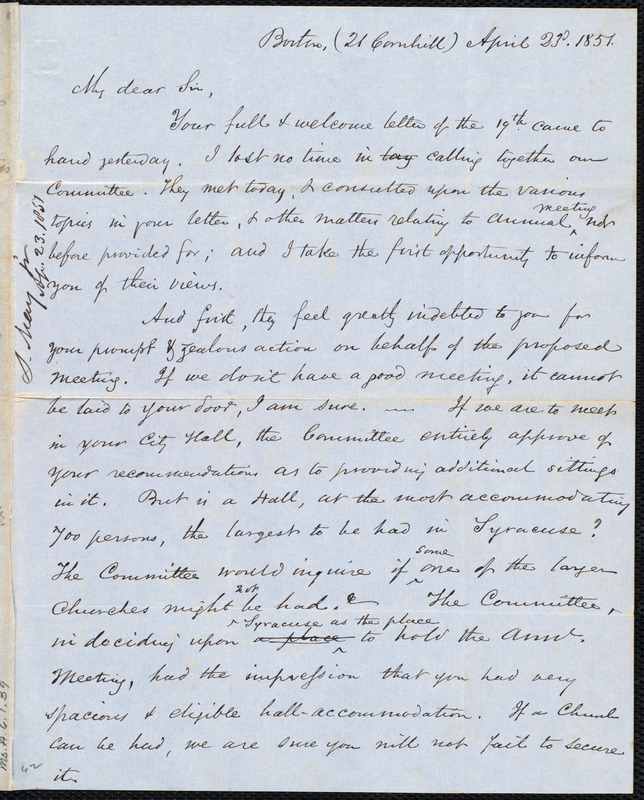 Boston, (21 Cornhill) April 23d. 1851.
My dear Sir,
Your full & welcome letter of the 19th came to
hand yesterday. I lost no time in calling together our
Committee. They met today, & consulted upon the various
topics in your letter, & other matters relating to Annual meeting, not
before provided for; and I take the first opportunity to inform
you of their views.
And first, they feel greatly indebted to you for
your prompt & zealous action on behalf of the proposed
meeting. If we don't have a good meeting, it cannot
be laid to your door, I am sure. — If we are to meet
in your City Hall, the Committee entirely approve of
your recommendations as to providing additional sittings
in it. But is a Hall, at the most accommodating
700 persons, the largest to be had in Syracuse?
The Committee would inquire if some one of the larger
Churches might not be had. & The Committee,
in deciding upon a place Syracuse as the place to hold the Annl.
Meeting, had the impression that you had very
spacious & eligible hall-accommodation. If a Church
can be had, we are sure you will not fail to secure
it.
S. May Jr
Apr. 23, 1851
Ms. A. 6. 1. 39